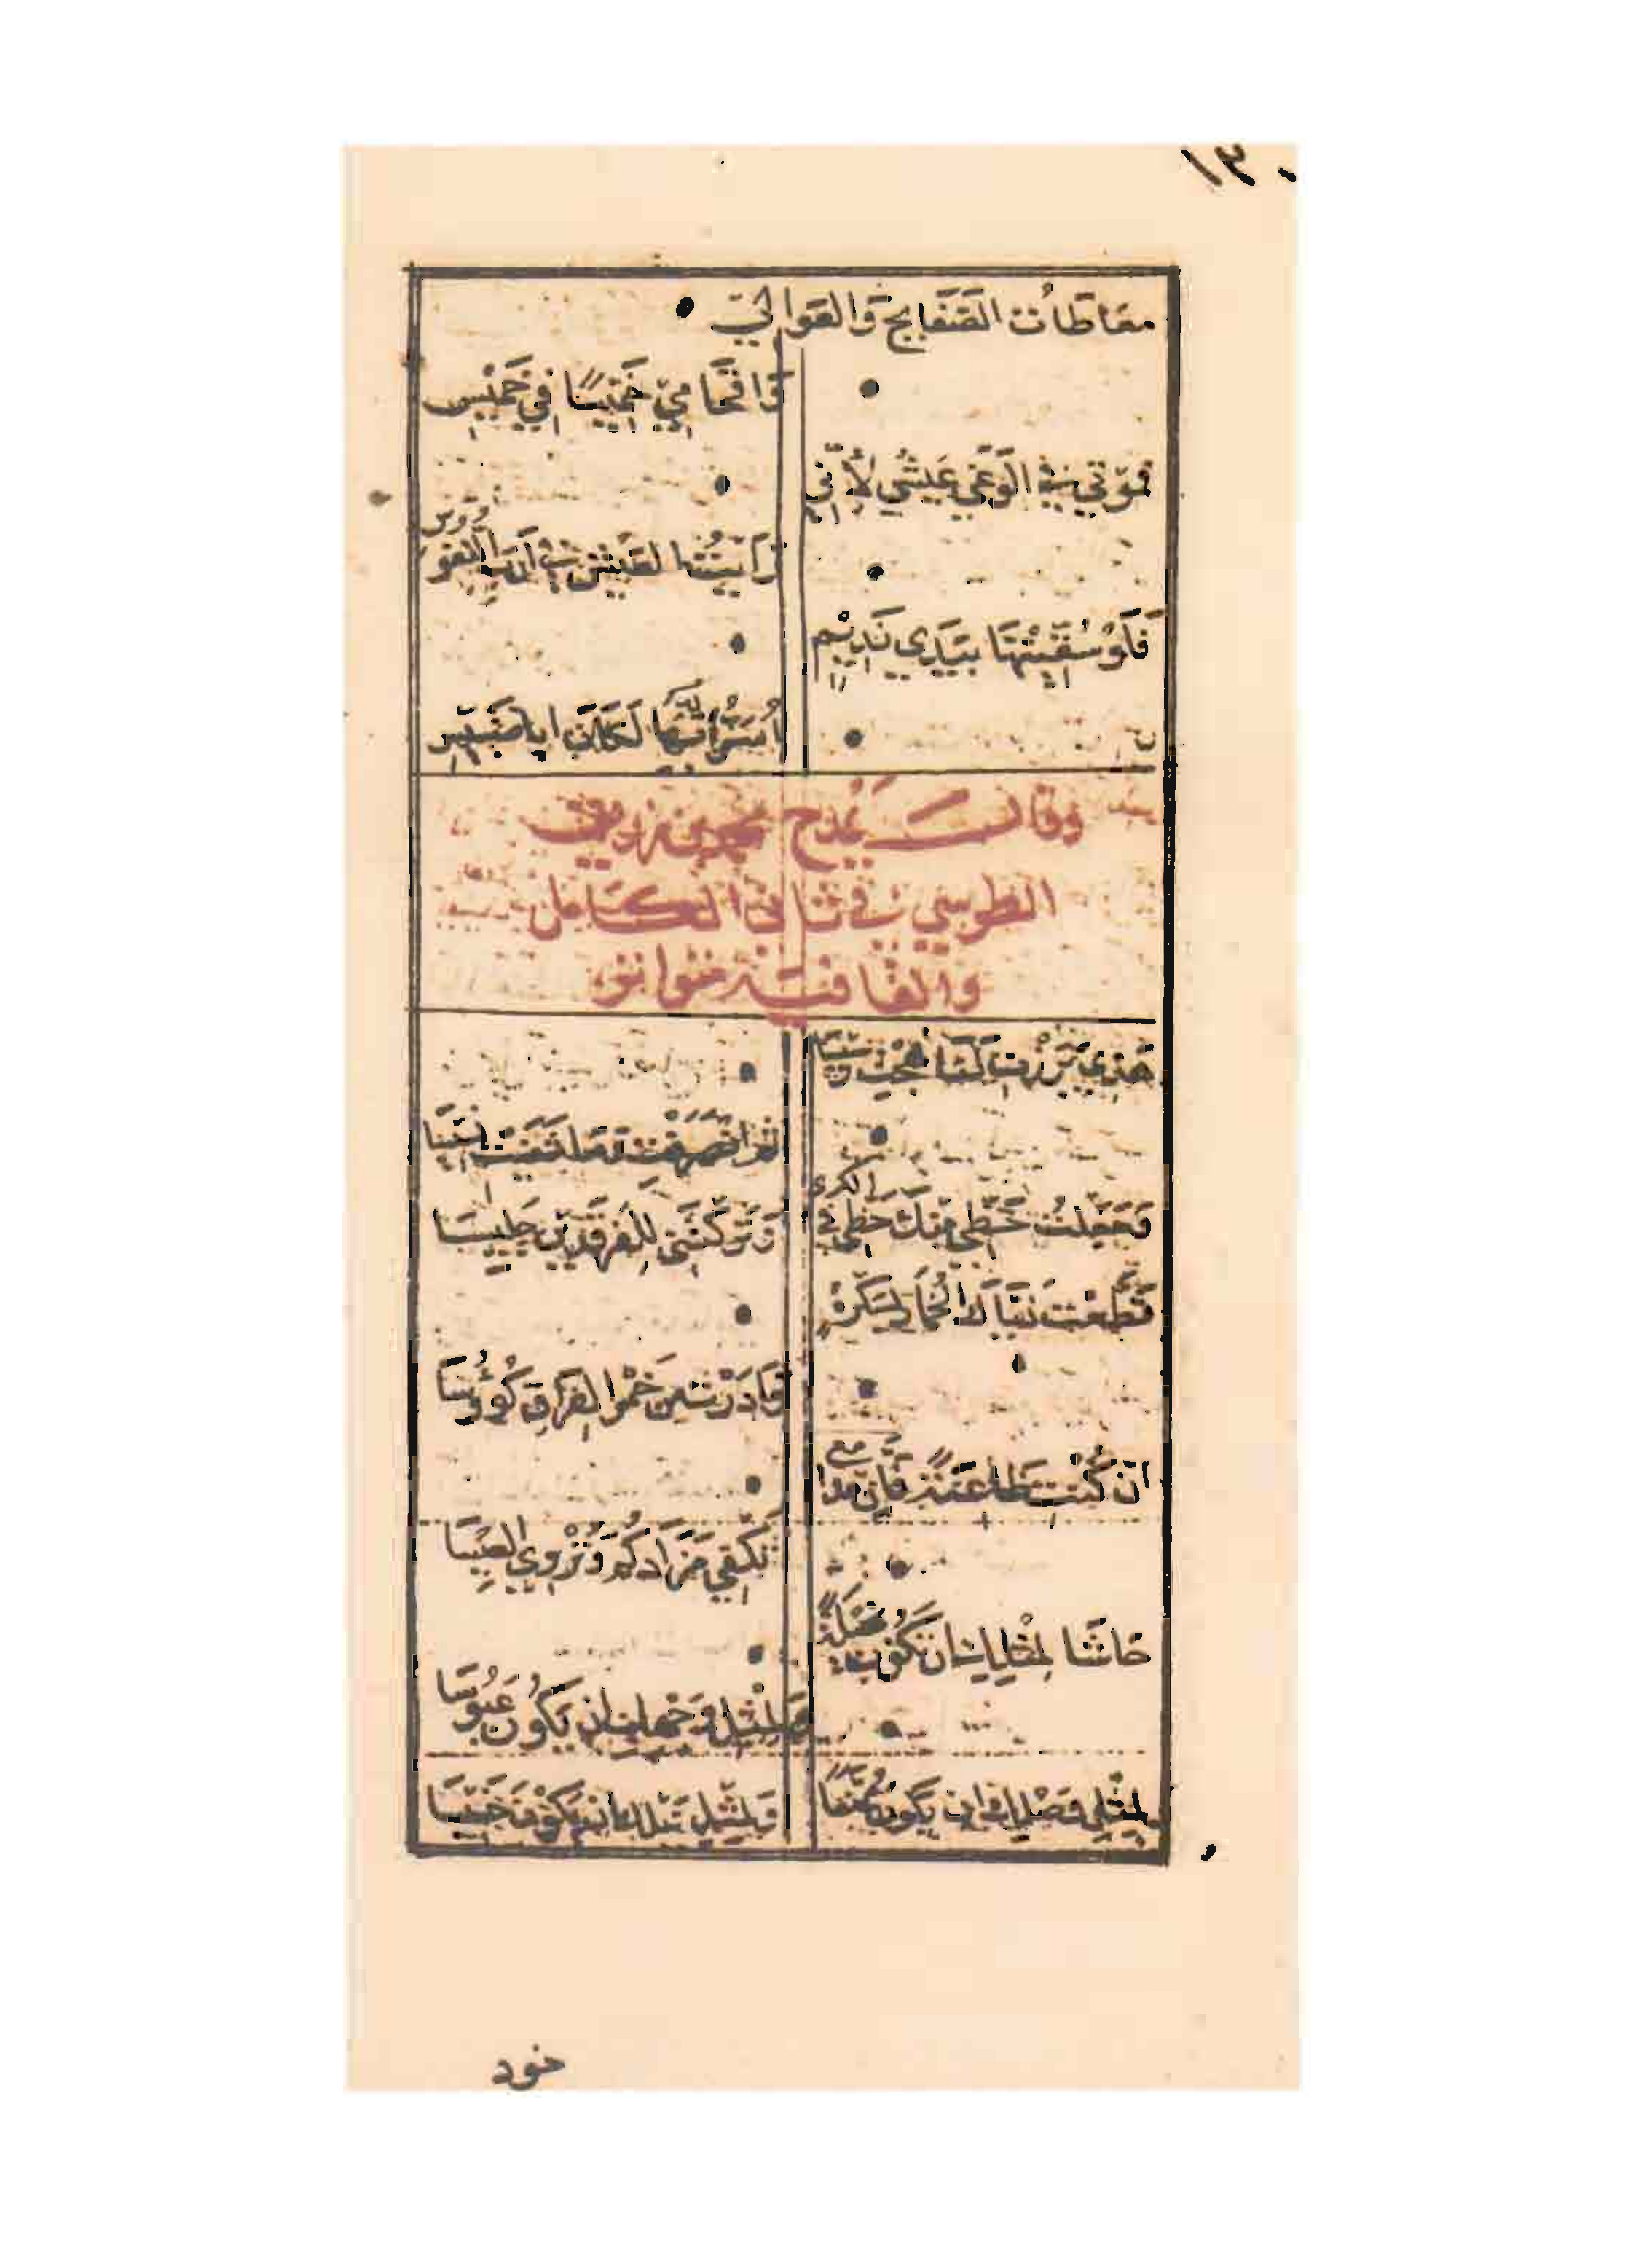 ١٣٠
معاطات الصَّفَايح وَالعَوالي
وَاقحَامِي خَمِيسًا فِي خَمِيسِ
فموتي في الوَغَي عَيشي لأَنّي
رَايتُ العَيش في أرَبِ النفوس
فَلَوْ سُقِّيْتُهَا بِيَدَي نَدِيْمٍ
أُسَرُّ بِهِ لَكَانَ ابا ضَبِيسِ
وقال يَمدح محمد بن زريق
الطرسوسي في ثاني الكامل
والقافية متواتر
هَذِي بَرَزْتِ لَنَا فَهِجْتِ رَسِيسَا
ثم انصَرَفْتِ وَمَا شَفَيْتِ نَسِيسَا
وَجَعَلْتِ حَظِّي مِنْكِ حَظِّي في الكرى
وَتَرَكْتَنِي لِلفَرقَدَيْنِ جَلِيسَا
قَطَّعْتِ ذيَّاكِ الخُمَارَ بِسَكْرَةٍ
وَأَدَرْتِ مِن خَمْرِ الفِرَاقِ كُؤُوسَا
ان كُنْتِ ظَاعِنَةً فَإِنَّ مدامعي
تَكْفِي مَزَادَكُمُ وَتُرْوِي العِيسَا
حَاشَا لِمثلِكِ ان تَكُونَ بَخِيلَةً
وَلِمِثْلِ وَجْهِكِ ان يَكُونَ عَبُوسَا
ولِمِثْلِ وَصْلِكِ ان يَكُونَ مُمَنَّعًا
وَلِمِثْلِ نَيلِكِ ان يَكُوْنَ خَسِيسَا
خود